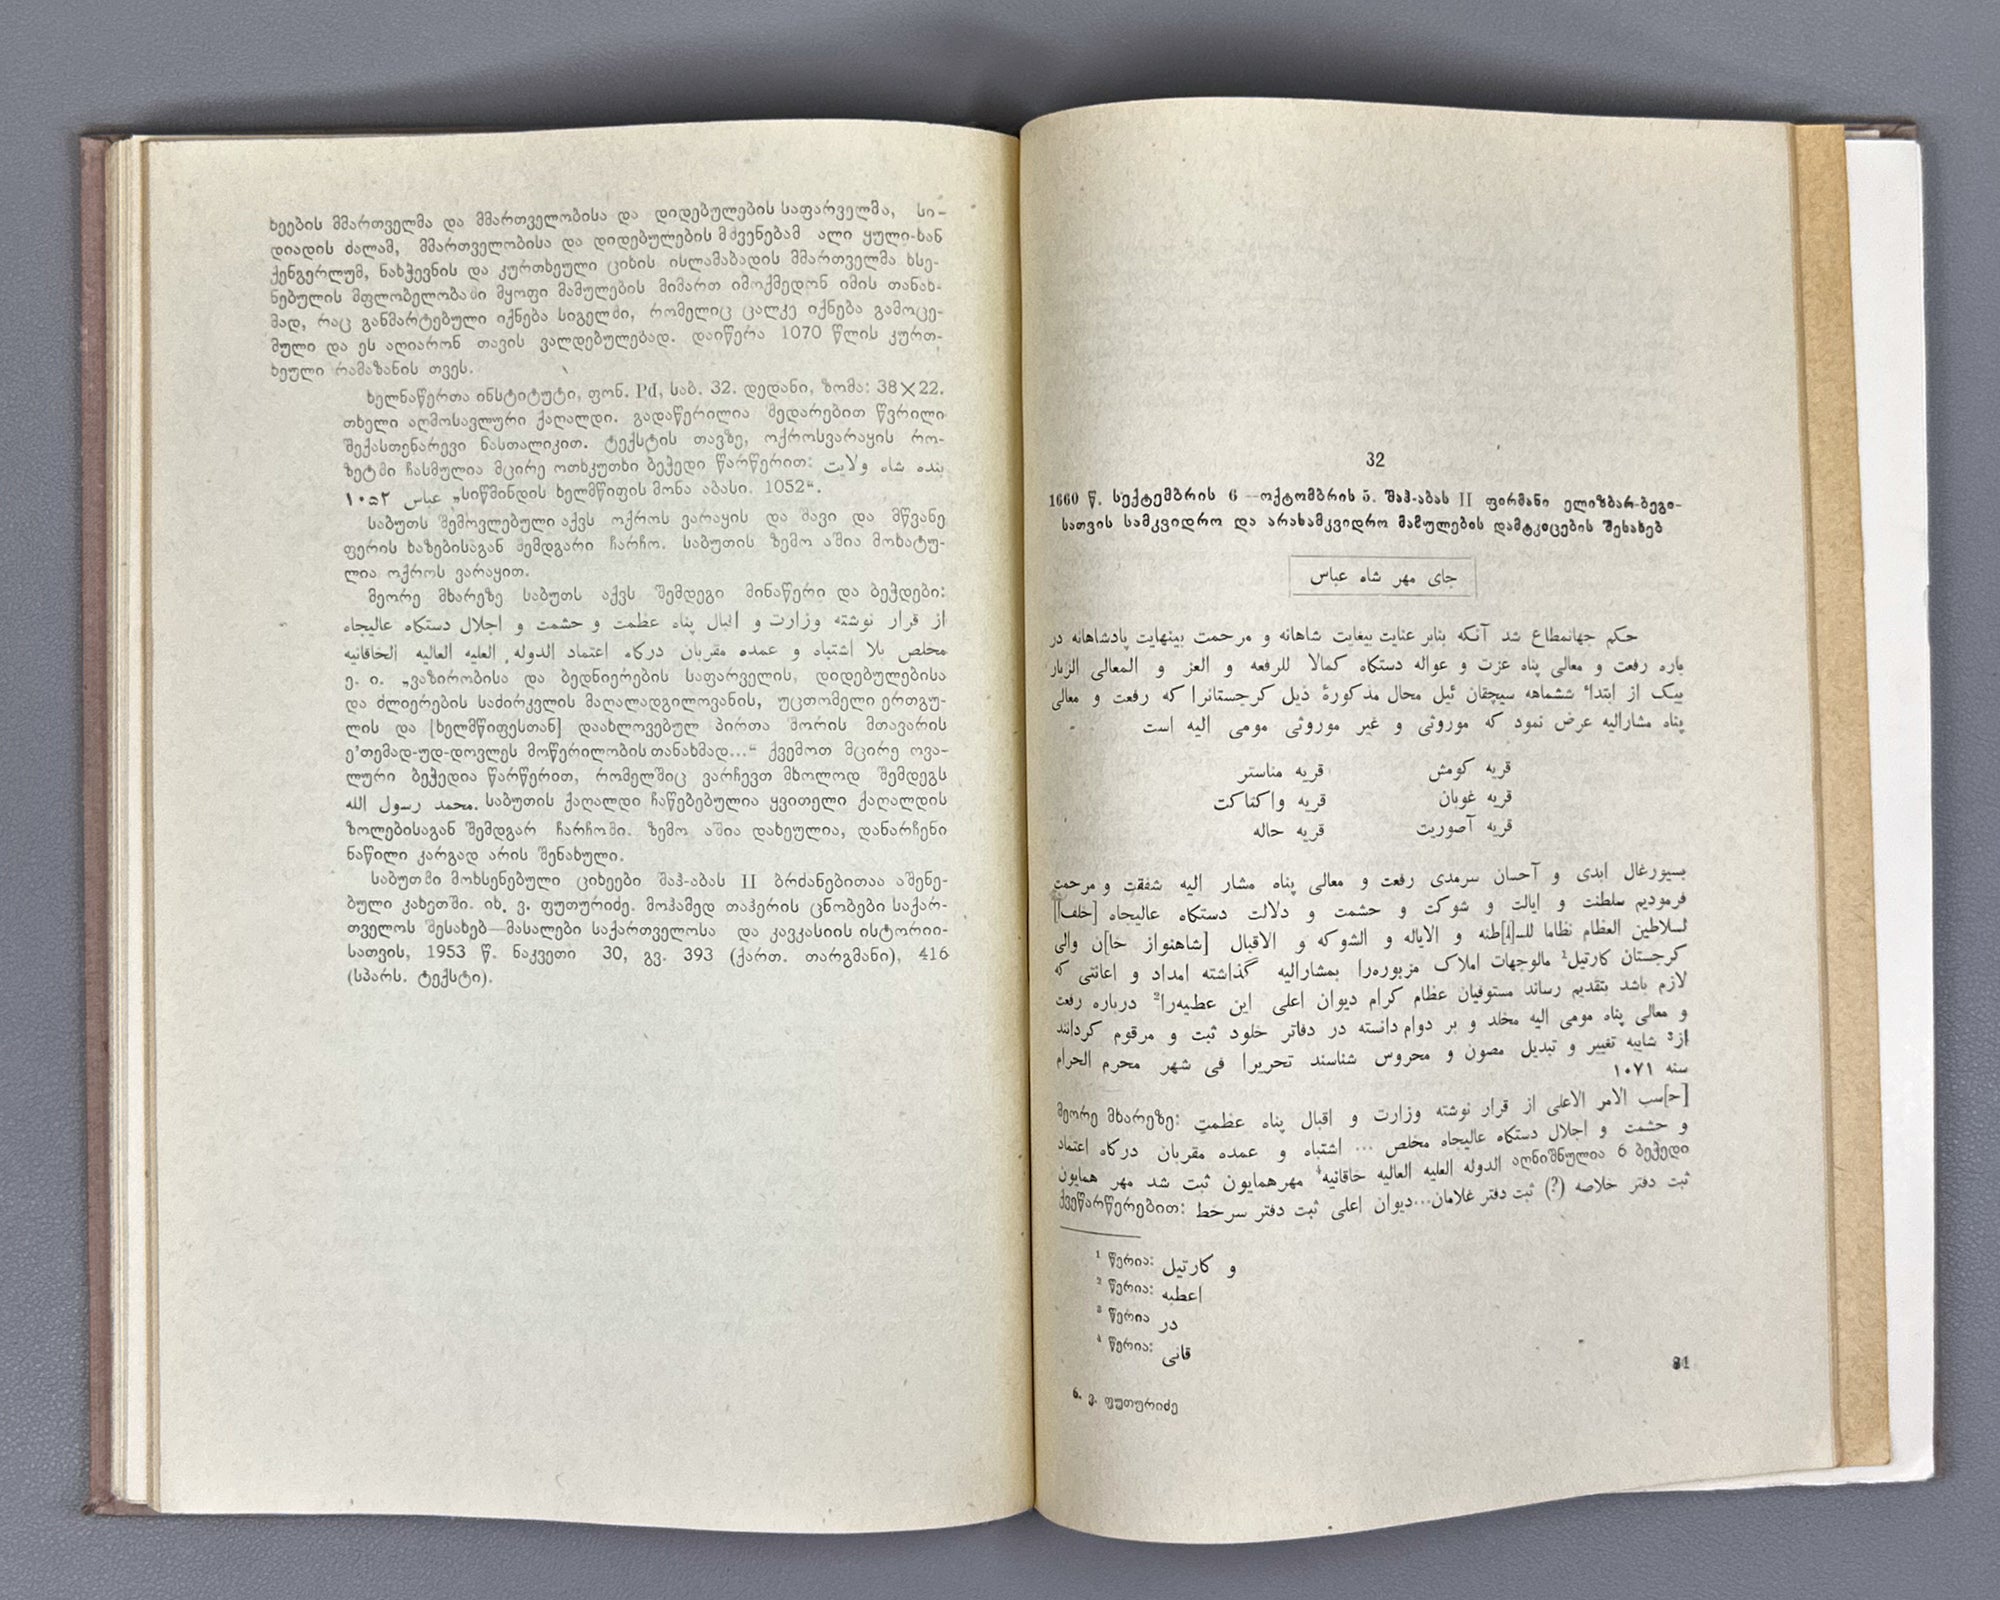 ხეების მმართველმა და მმართველობისა და დიდებულების საფარველმა, სი-
დიადის ძალამ, მმართველობისა და დიდებულების მშვენებამ ალი ყული-ხან
ქენგერლუმ, ნახჭევნის და კურთხეული ციხის ისლამაბადის მმართველმა ხსე-
ნებულის მფლობელობაში მყოფი მამულების მიმართ იმოქმედონ იმის თანახ-
მად, რაც განმარტებული იქნება სიგელში, რომელიც ცალკე იქნება გამოცე-
მული და ეს აღიარონ თავის ვალდებულებად. დაიწერა 1070 წლის კურთ-
ხეული რამაზანის თვეს.
ხელნაწერთა ინსტიტუტი, ფონ. Pd, საბ. 32. დედანი, ზომა: 38×22.
თხელი აღმოსავლური ქაღალდი. გადაწერილია შედარებით წვრილი
შექასთენარევი ნასთალიკით. ტექსტის თავზე, ოქროსვარაყის რო-
ზეტში ჩასმულია მცირე ოთხკუთხი ბეჭედი წარწერით: بنده شاه ولایت
عباس ۱۰۵۲ „სიწმინდის ხელმწიფის მონა აბასი. 1052“.
საბუთს შემოვლებული აქვს ოქროს ვარაყის და შავი და მწვანე
ფერის ხაზებისაგან შემდგარი ჩარჩო. საბუთის ზემო აშია მოხატუ-
ლია ოქროს ვარაყით.
მეორე მხარეზე საბუთს აქვს შემდეგი მინაწერი და ბეჭდები:
از قرار نوشته وزارت و اقبال پناه عظمت و حشمت و اجلال دستگاه عالیجاه
مخلص بلا اشتباه و عمده مقربان درکاه اعتماد الدوله العلیه العالیه الخاقانیه
ე. ი. „ვაზირობისა და ბედნიერების საფარველის, დიდებულებისა
და ძლიერების საძირკვლის მაღალადგილოვანის, უცთომელი ერთგუ-
ლის და [ხელმწიფესთან] დაახლოვებულ პირთა შორის მთავარის
ე'თემად-უდ-დოვლეს მოწერილობის თანახმად...“ ქვემოთ მცირე ოვა-
ლური ბეჭედია წარწერით, რომელშიც ვარჩევთ მხოლოდ შემდეგს
محمد رسول الله. საბუთის ქაღალდი ჩაწებებულია ყვითელი ქაღალდის
ზოლებისაგან შემდგარ ჩარჩოში. ზემო აშია დახეულია, დანარჩენი
ნაწილი კარგად არის შენახული.
საბუთში მოხსენებული ციხეები შაჰ-აბას II ბრძანებითაა აშენე-
ბული კახეთში. იხ. ვ. ფუთურიძე. მოჰამედ თაჰერის ცნობები საქარ-
თველოს შესახებ—მასალები საქართველოსა და კავკასიის ისტორიი-
სათვის, 1953 წ. ნაკვეთი 30, გვ. 393 (ქართ. თარგმანი), 416
(სპარს. ტექსტი).
32
1660 წ. სექტემბრის 6—ოქტომბრის 5. შაჰ-აბას II ფირმანი ელიზბარ-ბეგი-
სათვის სამკვიდრო და არასამკვიდრო მამულების დამტკიცების შესახებ
جای مهر شاه عباس
حکم جهانمطاع شد آنکه بنابر عنایت بیغایت شاهانه و مرحمت بینهایت پادشاهانه در
باره رفعت و معالی پناه عزت و عواله دستگاه کمالا للرفعه و العز و المعالی الزبار
بیک از ابتداء ششماهه سیچقان ئیل محال مذکورهٔ ذیل کرجستانرا که رفعت و معالی
پناه مشارالیه عرض نمود که موروثی و غیر موروثی مومی الیه است
قریه کومش قریه مناستر
قریه غوبان قریه واکناکت
قریه آصوریت قریه حاله
بسیورغال ابدی و آحسان سرمدی رفعت و معالی پناه مشار الیه شفقت و مرحمت
فرمودیم سلطنت و ایالت و شوکت و حشمت و دلالت دستگاه عالیجاه [خلف ا]
لسلاطین العظام نظاما للـ[س]لطنه و الایاله و الشوکه و الاقبال [شاهنواز خا]ن والی
کرجستان کارتیل¹ مالوجهات املاک مزبوره‌را بمشارالیه گذاشته امداد و اعانتی که
لازم باشد بتقدیم رساند مستوفیان عظام کرام دیوان اعلی این عطیه‌را² درباره رفعت
و معالی پناه مومی الیه مخلد و بر دوام دانسته در دفاتر خلود ثبت و مرقوم کردانند
از³ شایبه تغییر و تبدیل مصون و محروس شناسند تحریرا فی شهر محرم الحرام
سنه ۱۰۷۱
მეორე მხარეზე: [ح]سب الامر الاعلی از قرار نوشته وزارت و اقبال پناه عظمت
و حشمت و اجلال دستگاه عالیجاه مخلص ... اشتباه و عمده مقربان درکاه اعتماد
الدوله العلیه العالیه خاقانیه⁴ مهر همایون ثبت شد مهر همایون აღნიშნულია 6 ბეჭედი
ქვეწარწერებით: ثبت دفتر خلاصه (?) ثبت دفتر غلامان...دیوان اعلی ثبت دفتر سرخط
¹ წერია: و کارتیل
² წერია: اعطبه
³ წერია در
⁴ წერია: قانی
6. ვ. ფუთურიძე
81